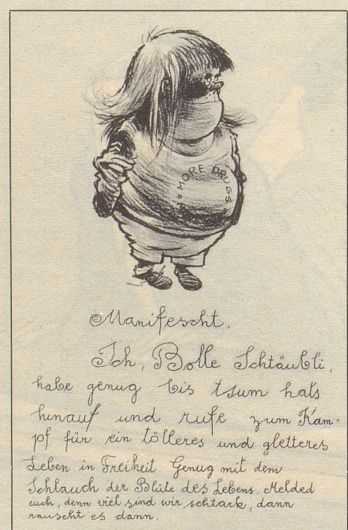 MORE DRUGS
Manifescht.
Ich, Bolle Schtäubli,
habe genug bis tsum hals
hinauf und rufe zum Kam-
pf für ein tölleres und gletteres
Leben in Freiheit. Genug mit dem
Schlauch der Blüte des Lebens. Melded
euch, denn viel sind wir schtark, dann
rauscht es dann.